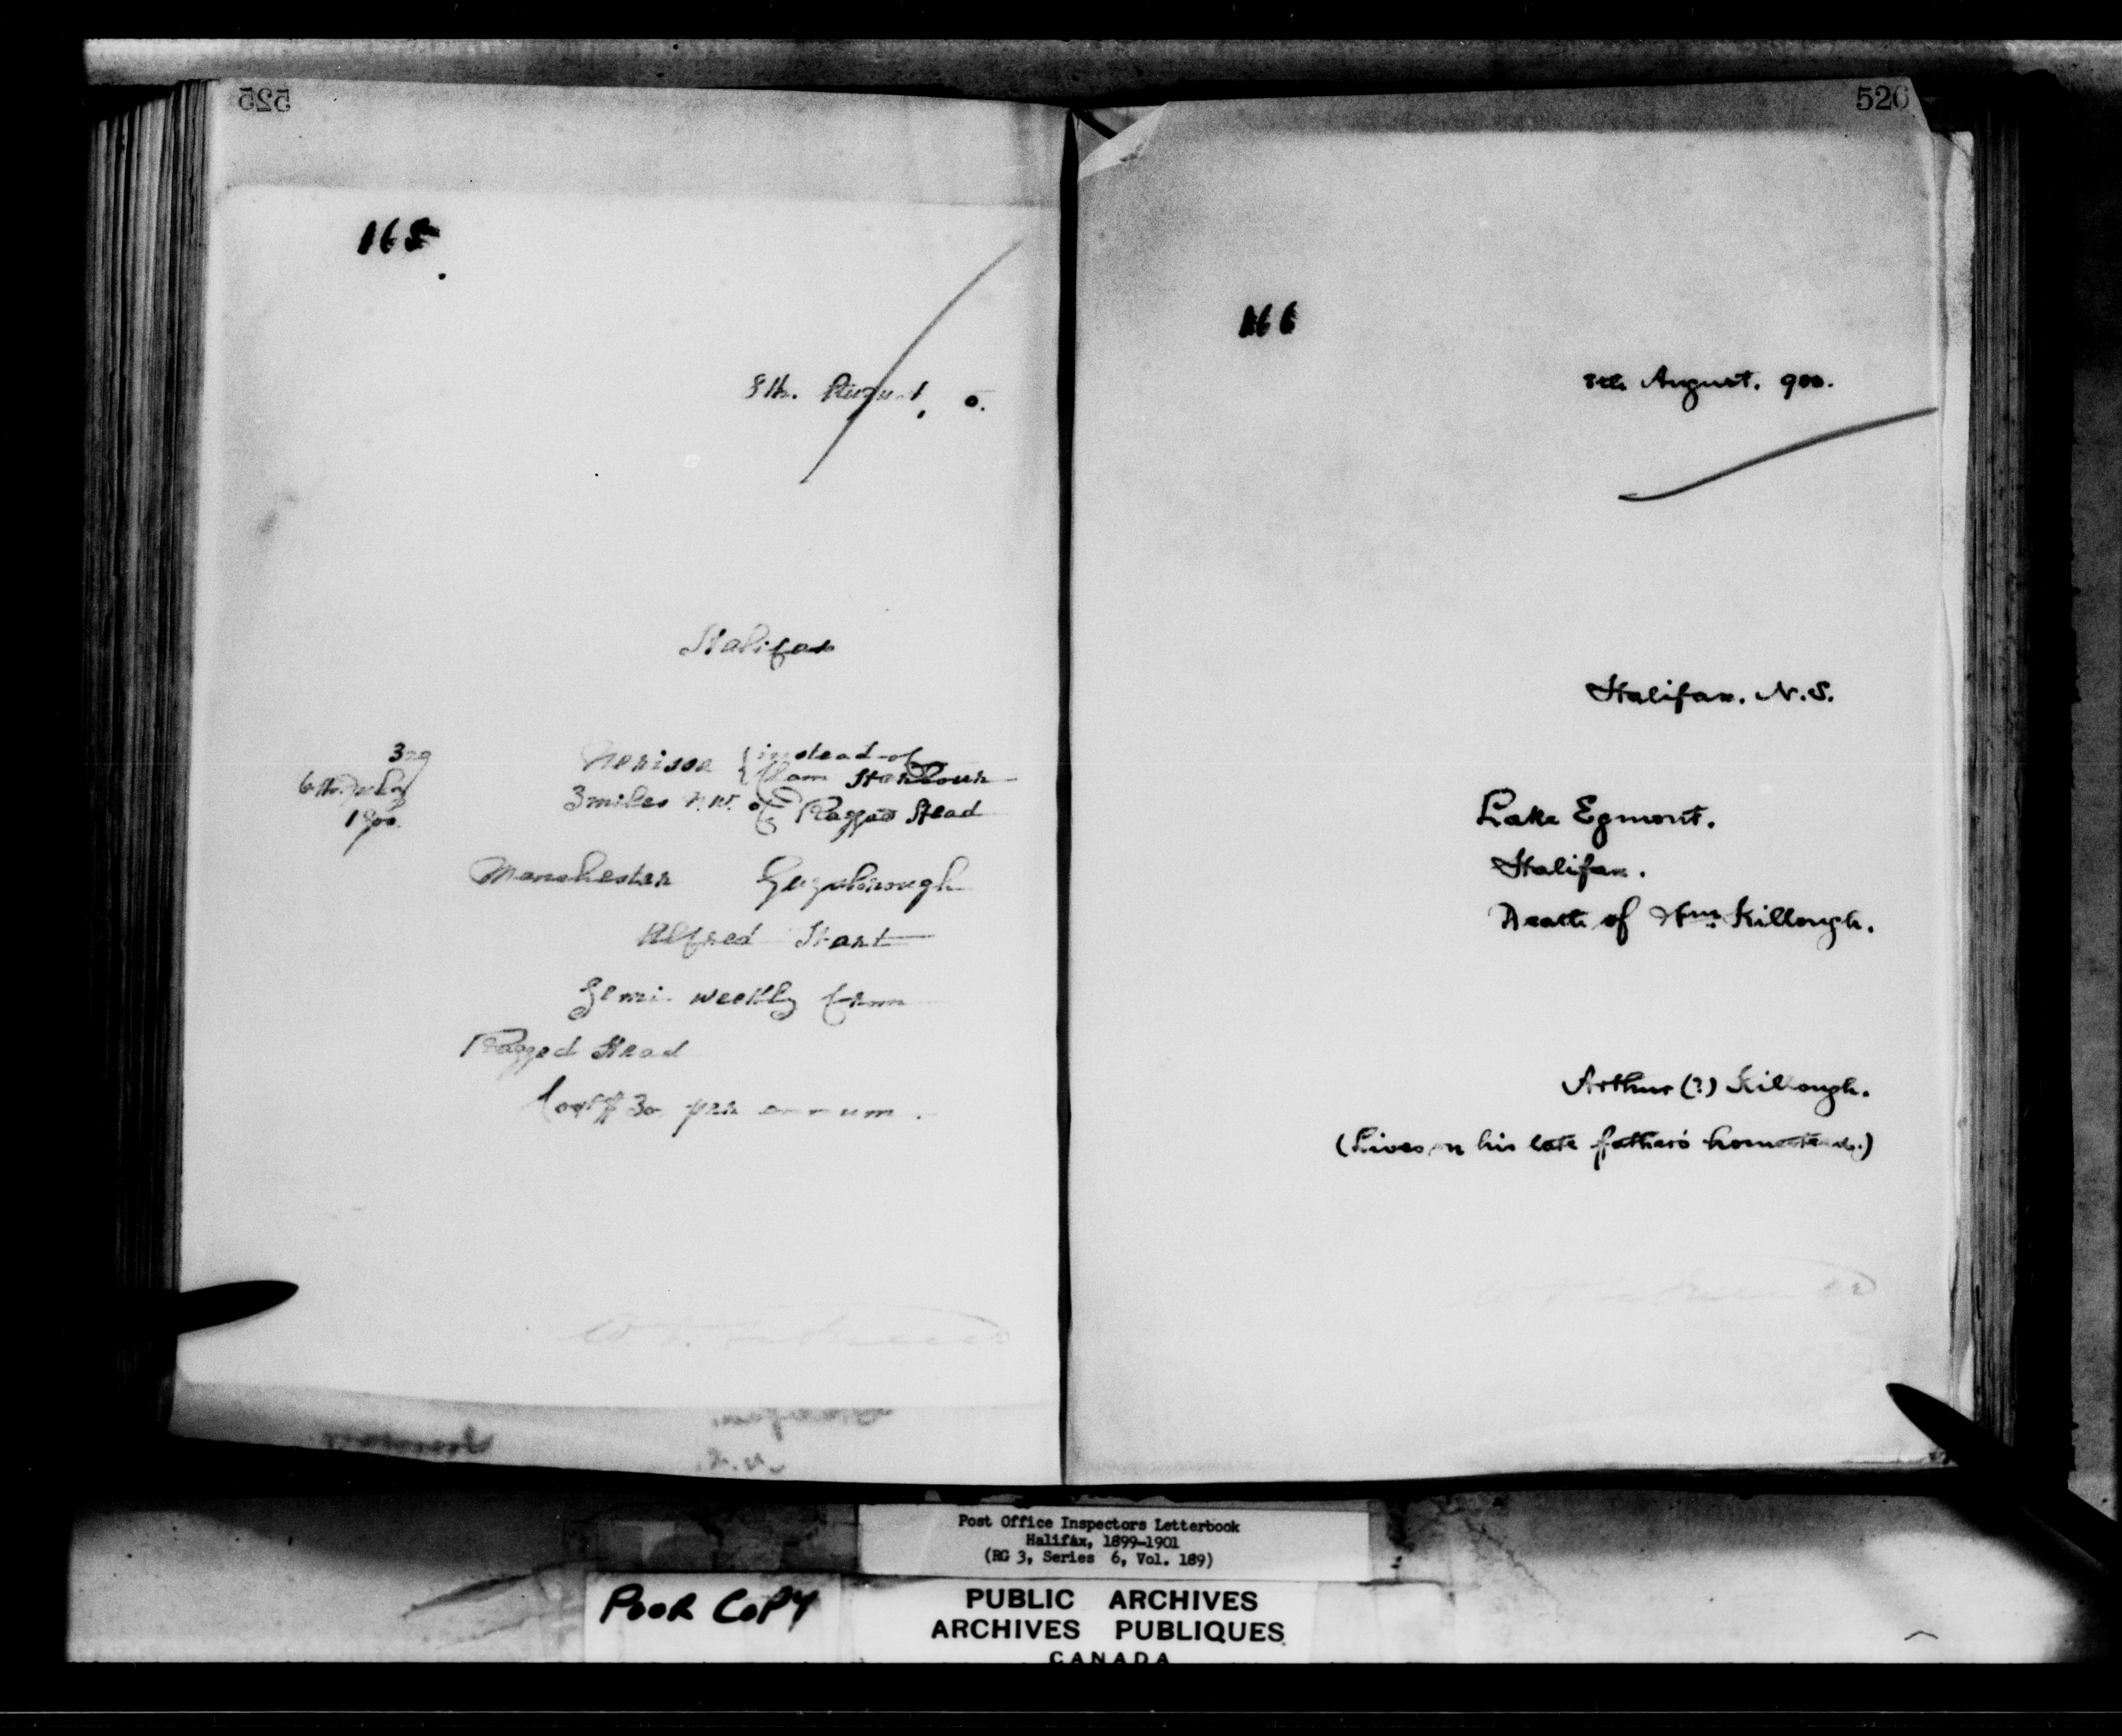 525
165
8th. August, 0.
Halifax
329
6th July
1900.
Nerissa { instead of
Clam Harbour
3 miles N.W. of Ragged Head
Manchester Guysborough
Alfred Hart
Semi-weekly from
Ragged Head
Cost $30 per annum.
526
166
8th August. 900.
Halifax. N.S.
Lake Egmont.
Halifax.
Death of Wm. Killough.
Arthur (?) Killough.
(Lives on his late father's homestead.)
Post Office Inspectors Letterbook
Halifax, 1899-1901
(RG 3, Series 6, Vol. 189)
POOR COPY
PUBLIC ARCHIVES
ARCHIVES PUBLIQUES
CANADA